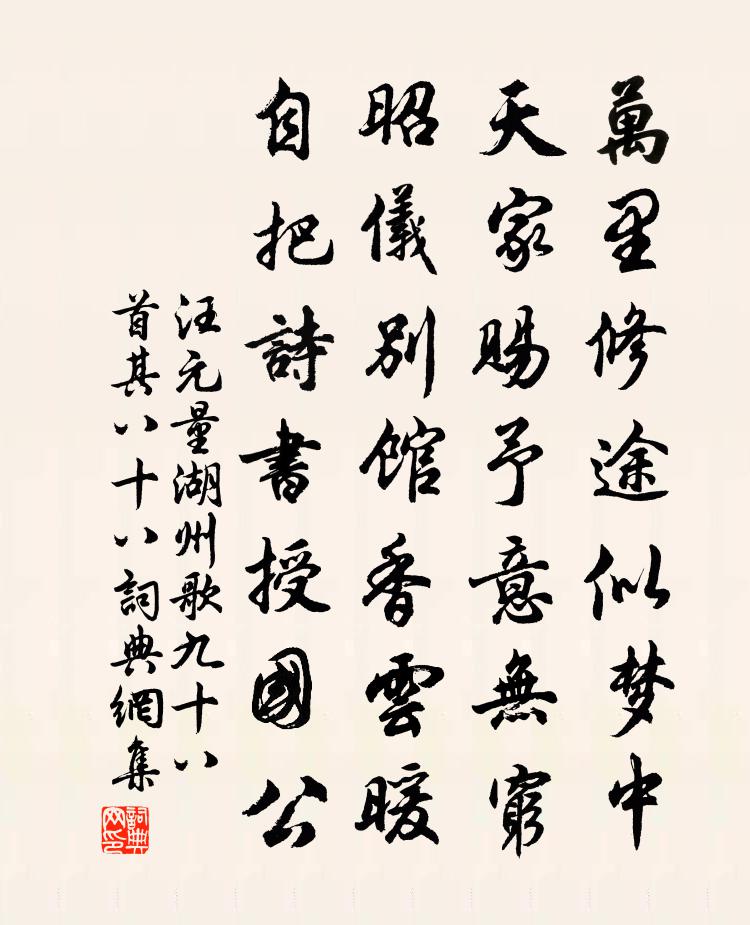 萬里修途似梦中
天家賜予意無窮
昭儀別館香雲暖
自把詩書授國公
汪元量湖州歌九十八
首其八十八詞典網集
詞典網印